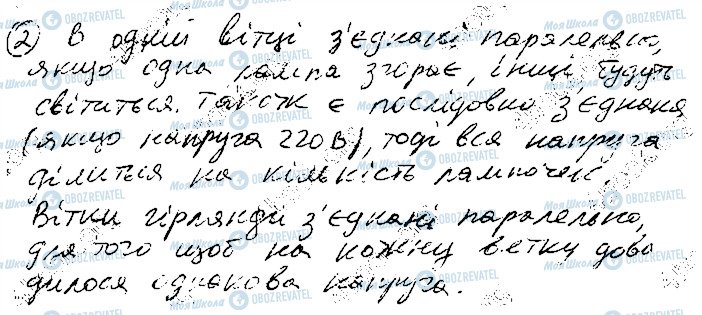 ② В одній вітці з'єднані паралельно,
якщо одна лампа згорає, інші будуть
світиться. Також є послідовно з'єднана
(якщо напруга 220В), тоді вся напруга
ділиться на кількість лампочек.
Вітки гірлянди з'єднані паралельно,
для того щоб на кожну ветку дово
дилося однакова напруга.